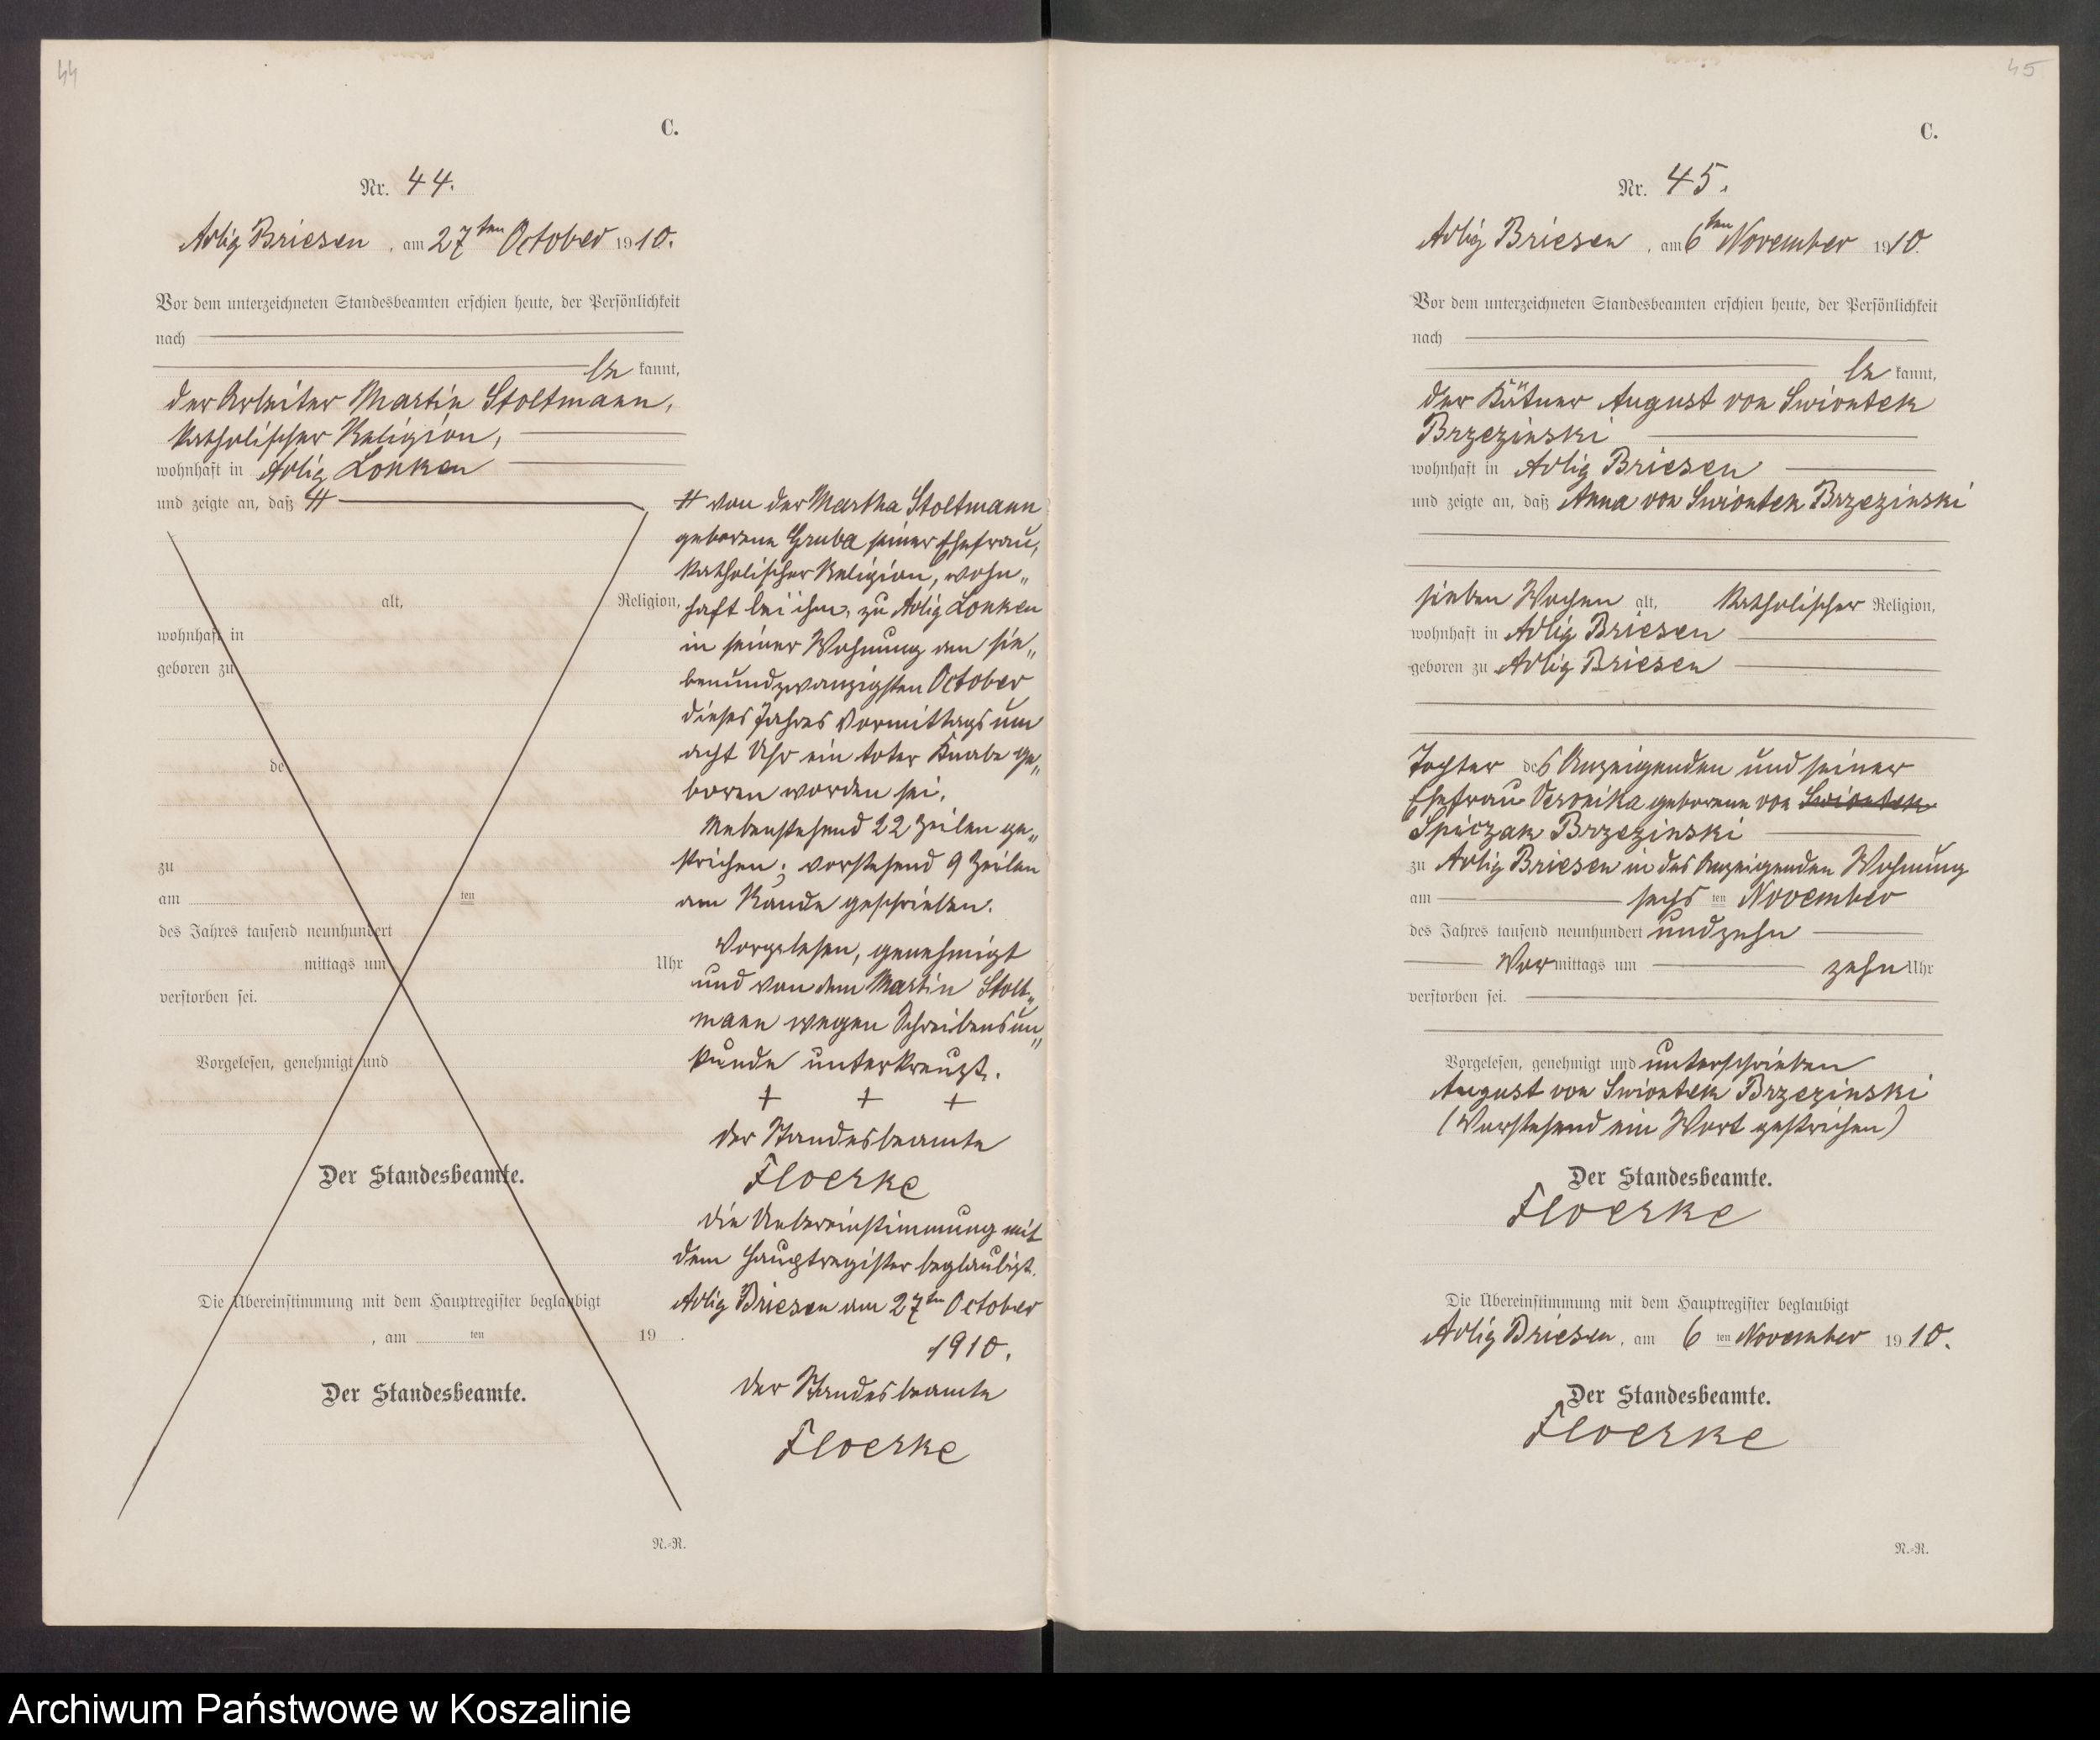 44
C.
Nr. 44.
Adlig Briesen, am 27ten October 1910.
Vor dem unterzeichneten Standesbeamten erschien heute, der Persönlichkeit
nach
be kannt,
der Arbeiter Martin Stoltmann,
katholischer Religion,
wohnhaft in Adlig Lonken
und zeigte an, daß #
alt, Religion,
wohnhaft in
geboren zu
de
zu
am ten
des Jahres tausend neunhundert
mittags um Uhr
verstorben sei.
Vorgelesen, genehmigt und
Der Standesbeamte.
Die Übereinstimmung mit dem Hauptregister beglaubigt
, am ten 19 .
Der Standesbeamte.
# von der Martha Stoltmann
geborene Gruba seiner Ehefrau,
katholischer Religion, wohn„
haft bei ihm, zu Adlig Lonken
in seiner Wohnung am sie„
benundzwanzigsten October
dieses Jahres Vormittags um
acht Uhr ein toter Knabe ge„
boren worden sei.
Nebenstehend 22 Zeilen ge„
strichen; vorstehend 9 Zeilen
am Rande geschrieben.
Vorgelesen, genehmigt
und von dem Martin Stolt„
mann wegen Schreibensun„
kunde unterkreuzt.
+ + +
Der Standesbeamte
Floerke
Die Uebereinstimmung mit
dem Hauptregister beglaubigt.
Adlig Briesen am 27ten October
1910.
Der Standesbeamte
Floerke
N.-R.
45
C.
Nr. 45.
Adlig Briesen, am 6ten November 1910.
Vor dem unterzeichneten Standesbeamten erschien heute, der Persönlichkeit
nach
be kannt,
der Kätner August von Swiontek
Brzezinski
wohnhaft in Adlig Briesen
und zeigte an, daß Anna von Swiontek Brzezinski
sieben Wochen alt, katholischer Religion,
wohnhaft in Adlig Briesen
geboren zu Adlig Briesen
Tochter des Anzeigenden und seiner
Ehefrau Veronika geborene von Swiontek
Spiczak Brzezinski
zu Adlig Briesen in des Anzeigenden Wohnung
am sechs ten November
des Jahres tausend neunhundert undzehn
Vor mittags um zehn Uhr
verstorben sei.
Vorgelesen, genehmigt und unterschrieben
August von Swiontek Brzezinski
(Vorstehend ein Wort gestrichen)
Der Standesbeamte.
Floerke
Die Übereinstimmung mit dem Hauptregister beglaubigt
Adlig Briesen, am 6 ten November 1910.
Der Standesbeamte.
Floerke
N.-R.
Archiwum Państwowe w Koszalinie